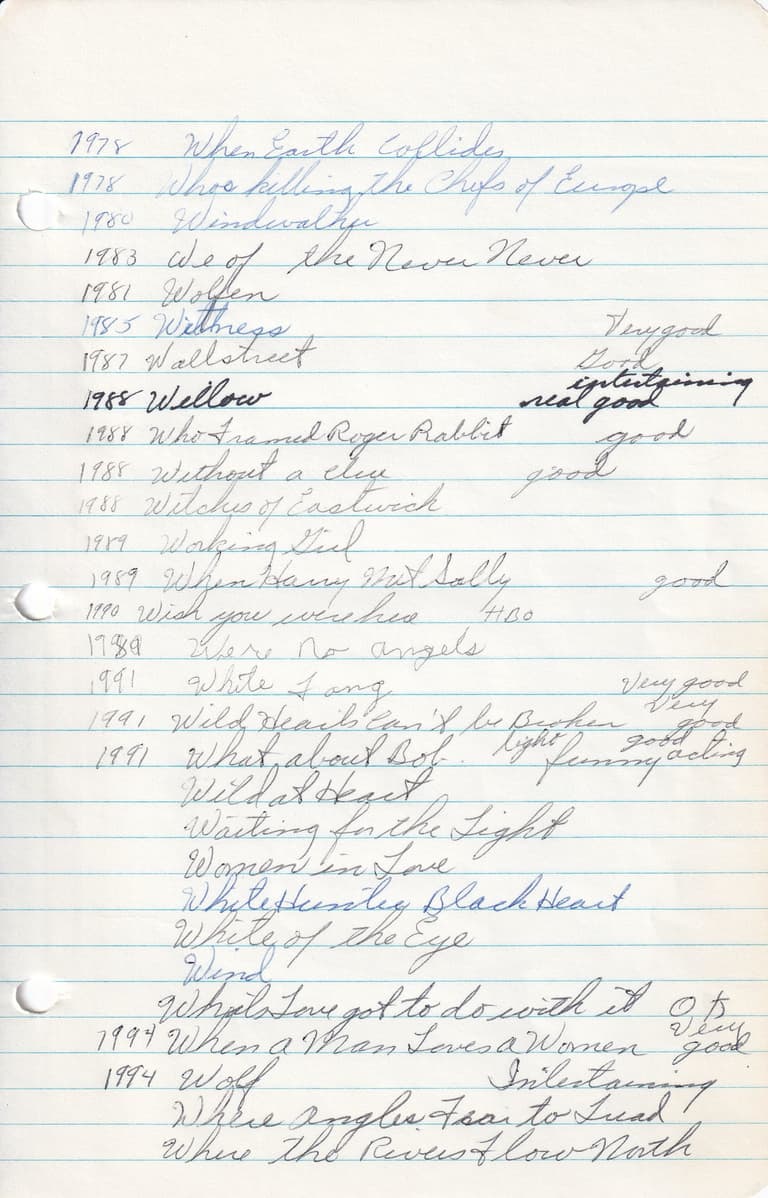 1978 When Earth Collides
1978 Whos killing the Chefs of Europe
1980 Windwalker
1983 We of the Never Never
1981 Wolfen
1985 Wittness Very good
1987 Wallstreet Good
1988 Willow real good intertaining
1988 Who Framed Roger Rabbit good
1988 Without a clue good
1988 Witches of Eastwick
1989 Working Girl
1989 When Harry Met Sally good
1990 Wish you were here HBO
1989 Were no angels
1991 White Fang Very good
1991 Wild Hearts Can't be Broken Very good
1991 What about Bob. light funny good acting
Wild at Heart
Waiting for the Light
Women in Love
White Hunter Black Heart
White of the Eye
Wind
Whats Love got to do with it
1994 When a Man Loves a Women Very good
1994 Wolf Intertaining
Where Angles Fear to Tread
Where the Rivers Flow North